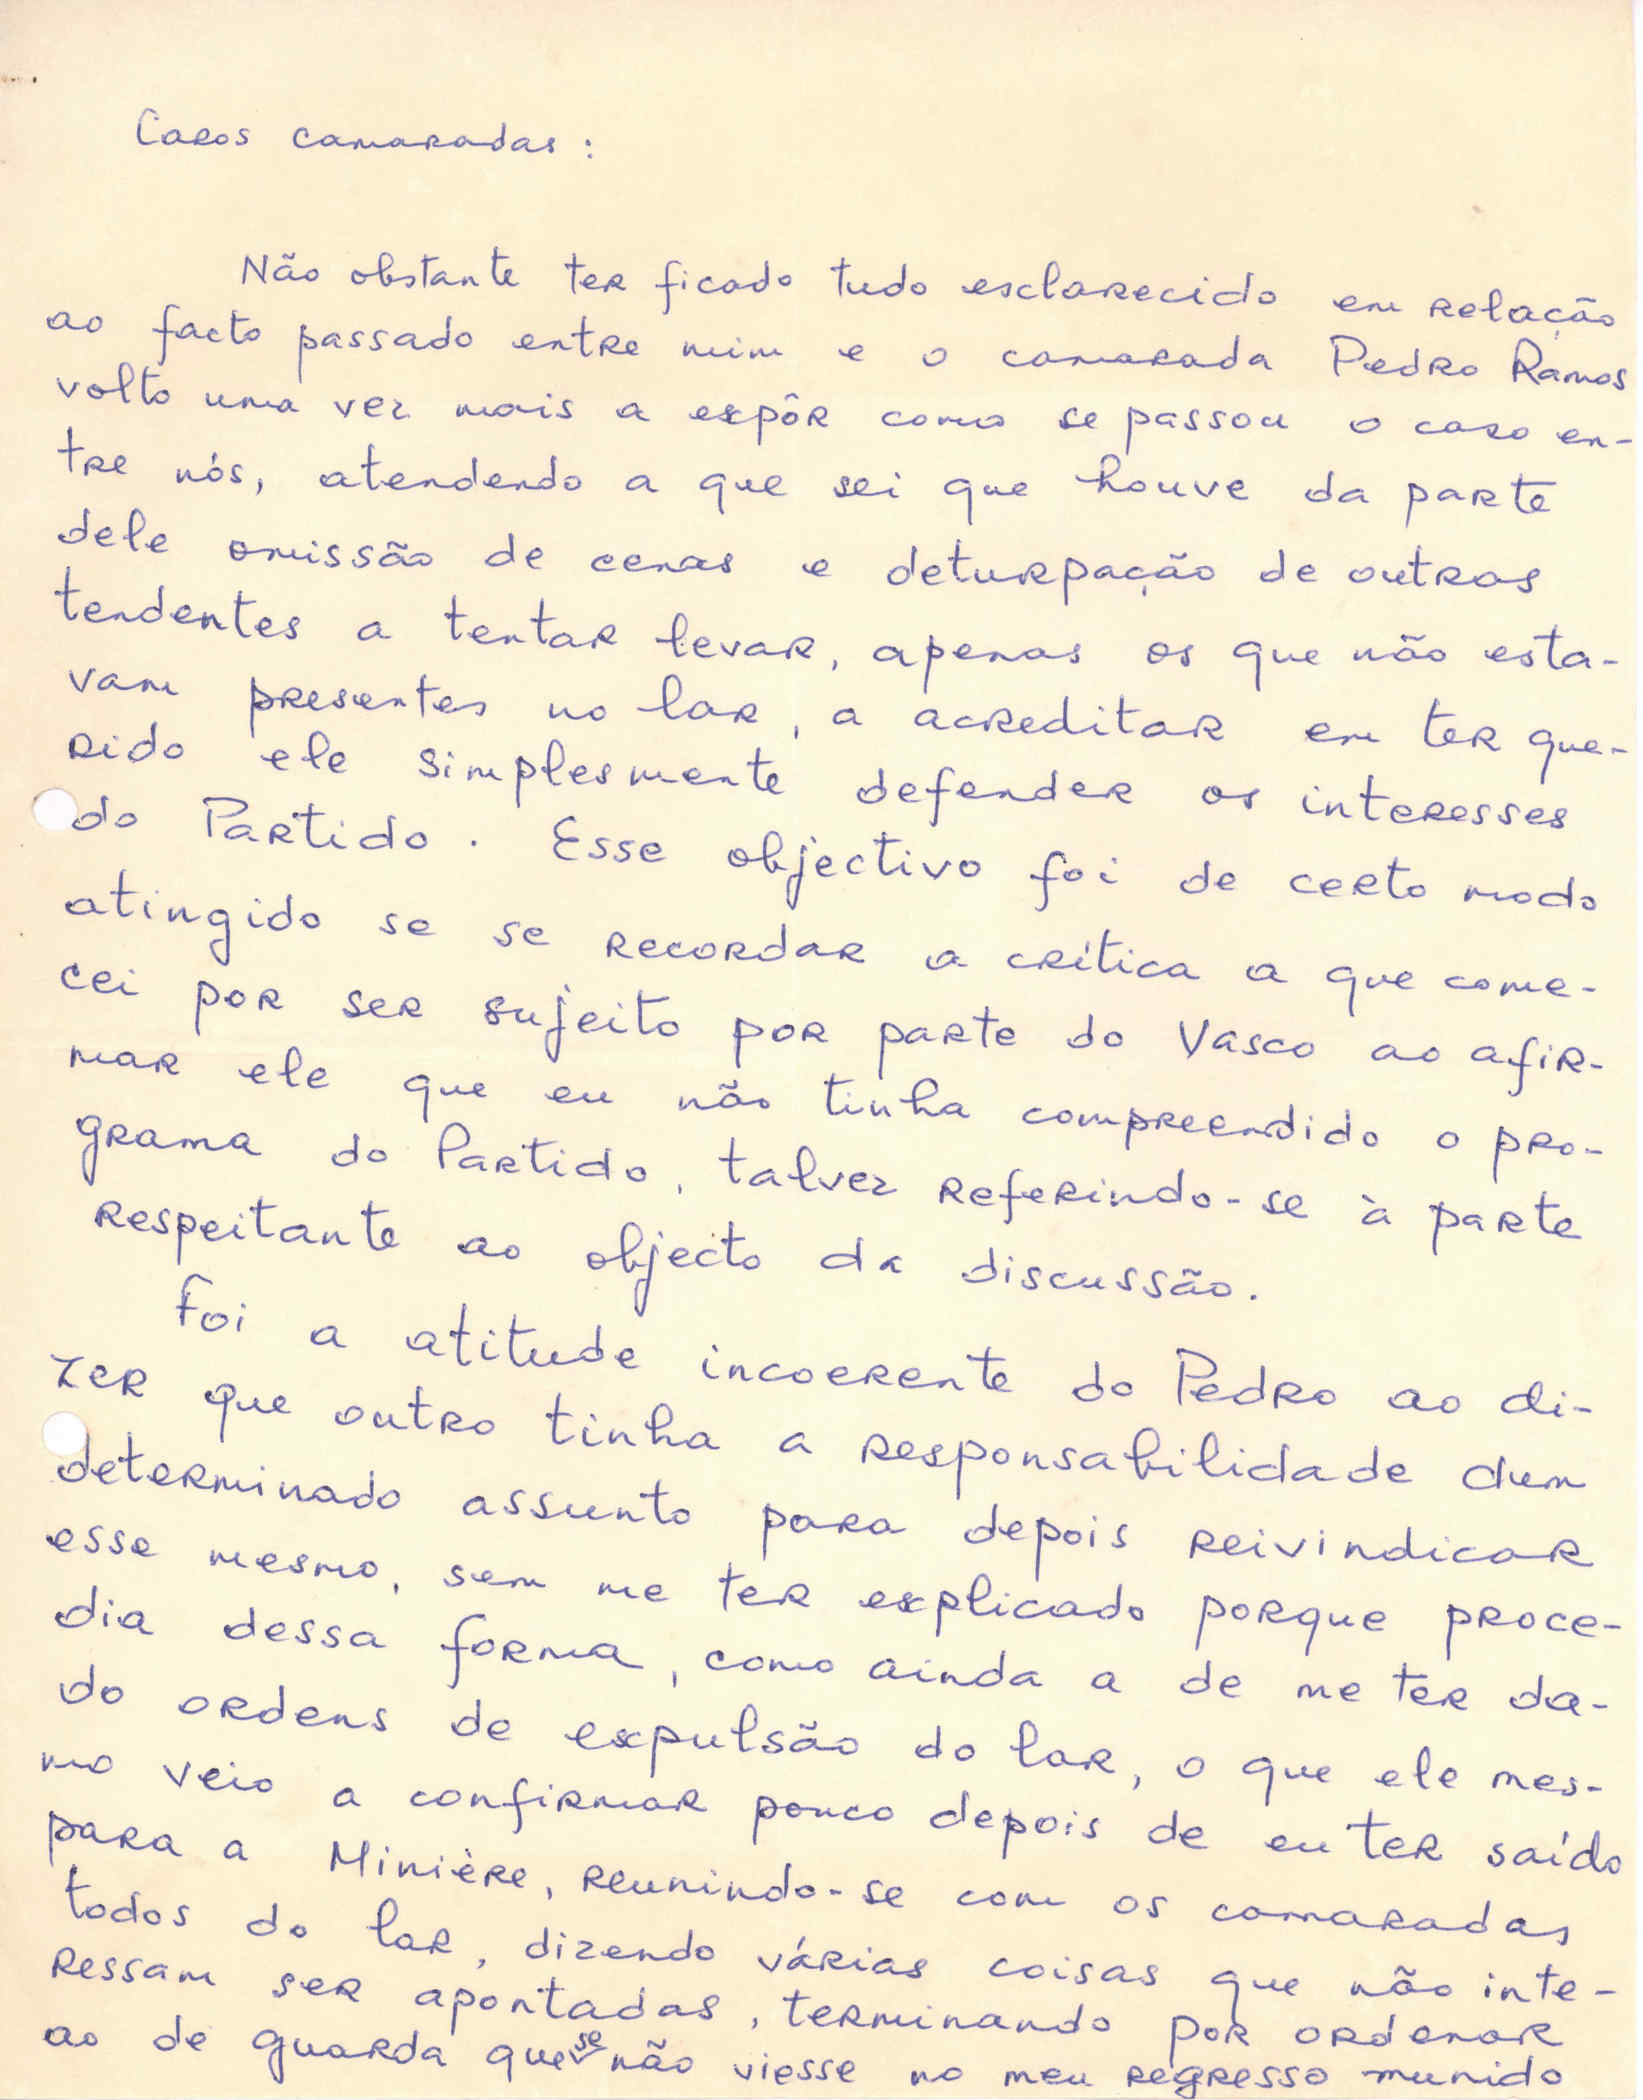 Caros camaradas:
Não obstante ter ficado tudo esclarecido em relação
ao facto passado entre mim e o camarada Pedro Ramos
volto uma vez mais a expôr como se passou o caso en-
tre nós, atendendo a que sei que houve da parte
dele omissão de cenas e deturpação de outras
tendentes a tentar levar, apenas os que não esta-
vam presentes no lar, a acreditar em ter que-
rido ele simplesmente defender os interesses
do Partido. Esse objectivo foi de certo modo
atingido se se recordar a crítica a que come-
cei por ser sujeito por parte do Vasco ao afir-
mar ele que eu não tinha compreendido o pro-
grama do Partido, talvez referindo-se à parte
respeitante ao objecto da discussão.
Foi a atitude incoerente do Pedro ao di-
zer que outro tinha a responsabilidade dum
determinado assunto para depois reivindicar
esse mesmo, sem me ter explicado porque proce-
dia dessa forma, como ainda a de me ter da-
do ordens de expulsão do lar, o que ele mes-
mo veio a confirmar pouco depois de eu ter saído
para a Minière, reunindo-se com os camaradas
todos do lar, dizendo várias coisas que não inte-
ressam ser apontadas, terminando por ordenar
ao de guarda que se não viesse no meu regresso munido